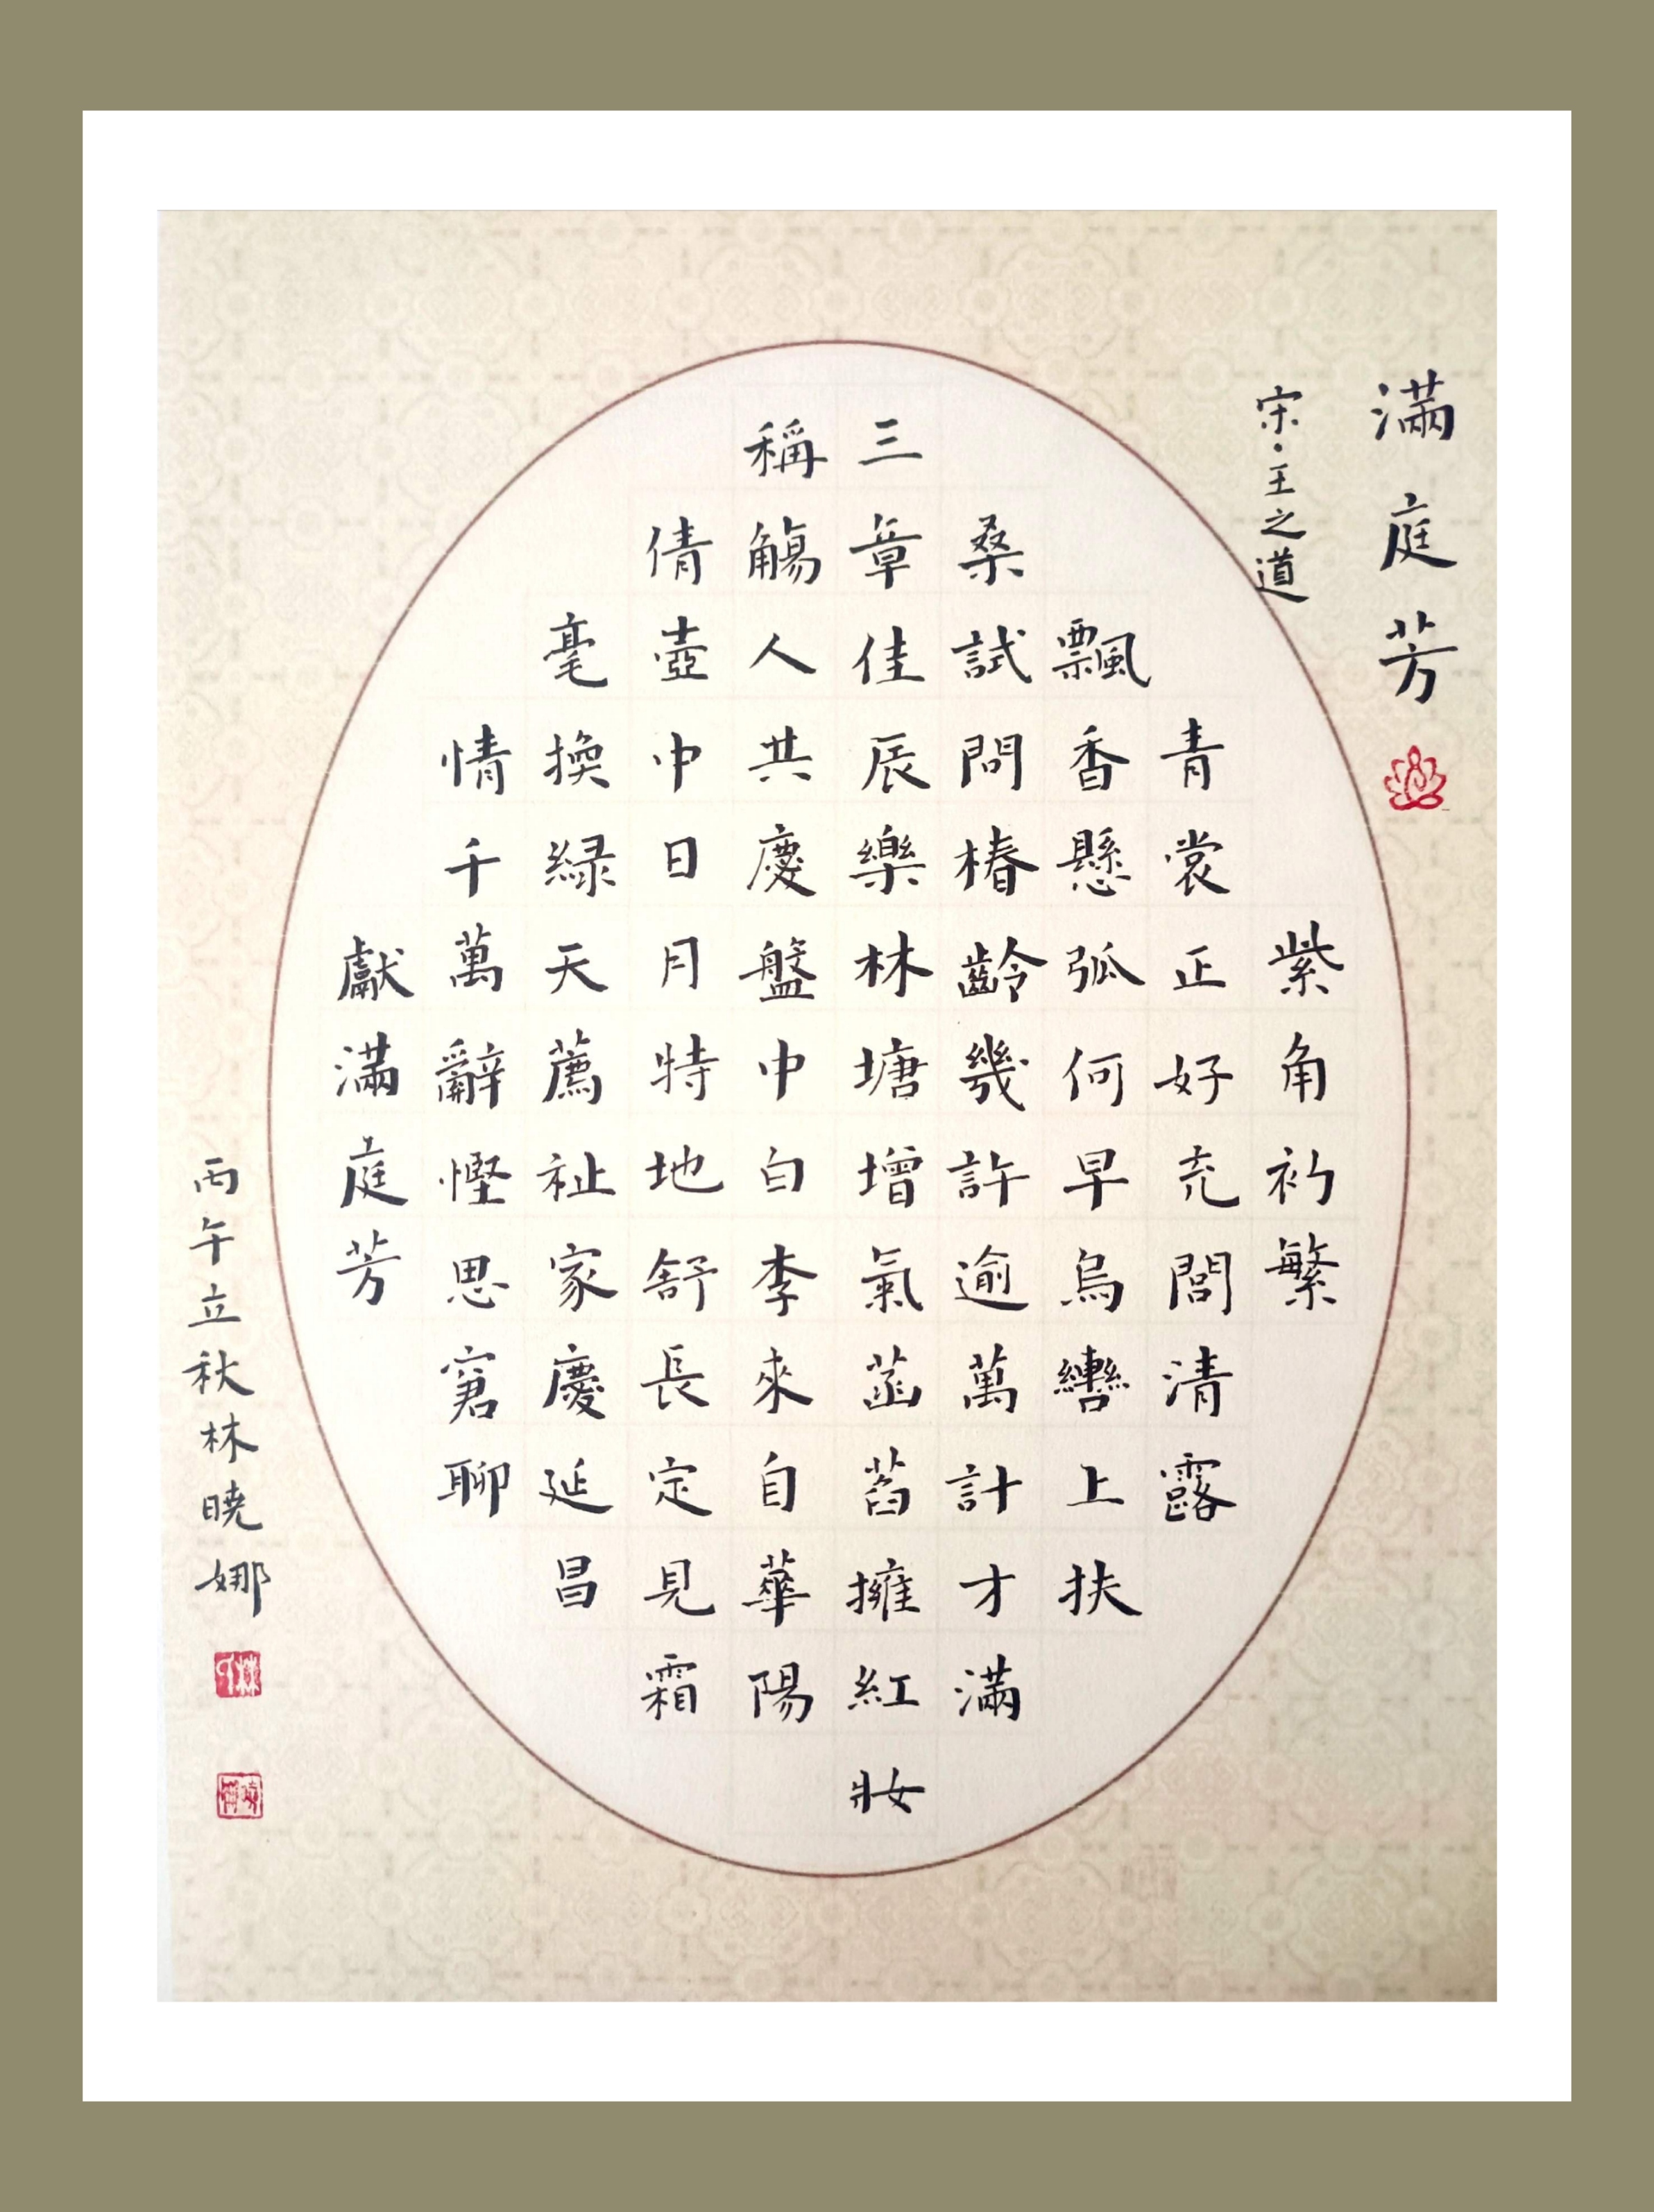 滿庭芳
宋·王之道
紫角礿繁
青裳正好充閭清露
飄香懸弧何早烏轡上扶
桑試問椿齡幾許逾萬計才滿
三章佳辰樂林塘增氣菡萏擁紅妝
稱觴人共慶盤中白李來自華陽
倩壺中日月特地舒長定見霜
毫換綠天薦祉家慶延昌
情千萬辭慳思窘聊
獻滿庭芳
丙午立秋林曉娜